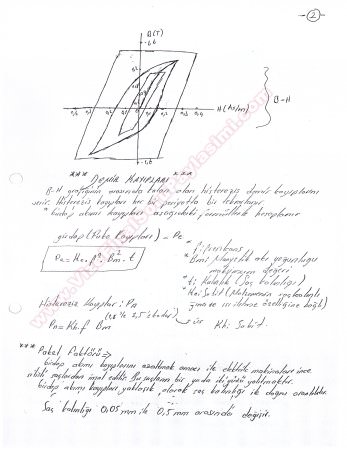 - ② -
B(T)
1,6
H(As/m)
B-H
-1,6
*** DEMİR KAYIPLARI ***
B-H grafiğinin arasında kalan alan histerezis demir kayıplarını
verir. Histerezis kayıpları her bir periyotta bir tekrarlanır.
* Girdap akımı kayıpları aşağıdaki formülle hesaplanır
girdap (Foko kayıpları) = Pe
Pe = Ke . f² . Bm² . t
* f: frekans
* Bm: Manyetik akı yoğunluğu
maksimum değeri
* t: Kalınlık (Saç kalınlığı)
* Ke: Sabit (Malzemenin
özelliğine bağlı)
Histerezis Kayıplar: Ph
Ph = Kh . f . Bm
üs
Kh: Sabit.
*** Paket Faktörü →
Girdap akımı kayıplarını azaltmak amacı ile elektrik makinaları ince
saçlardan imal edilir. Bu saçların bir yada iki yüzü yalıtılmıştır.
Girdap akımı kayıpları yaklaşık olarak saç kalınlığı ile doğru orantılıdır.
Saç kalınlığı 0,05 mm ile 0,5 mm arasında değişir.